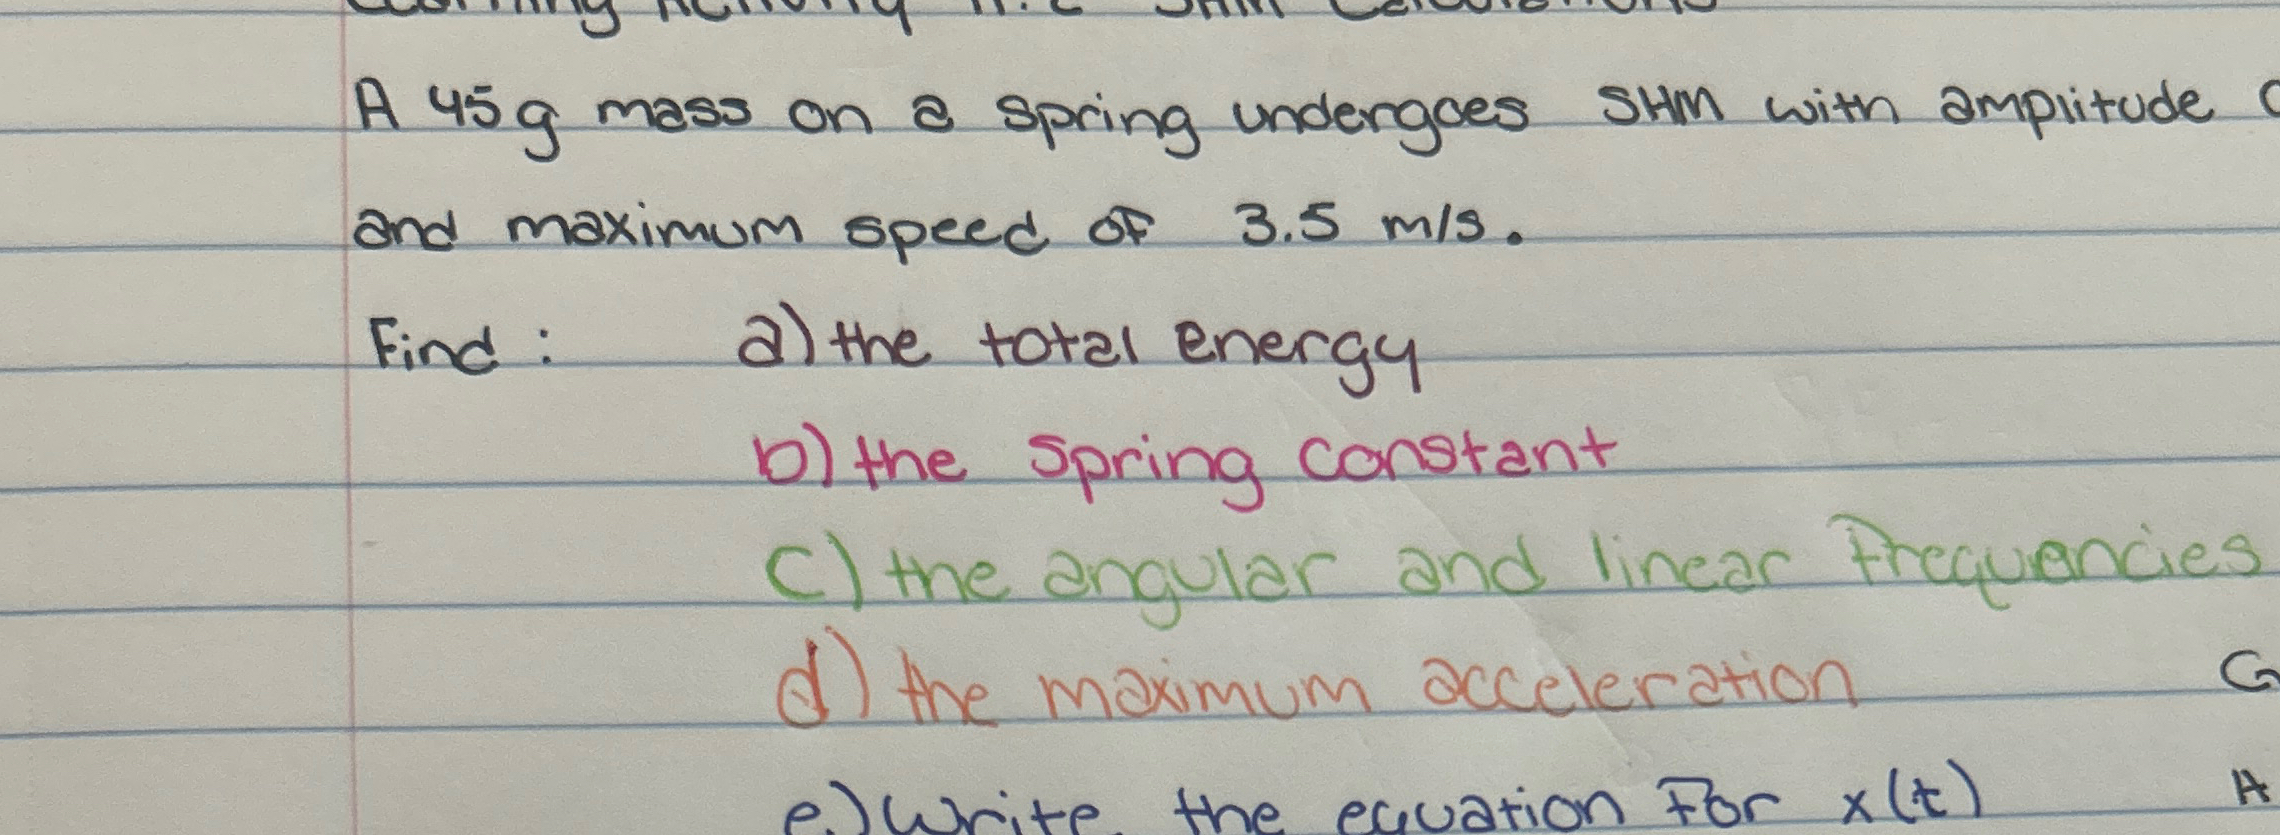 Learning Activity 11.2 SHM Calculations
A 45g mass on a spring undergoes SHM with amplitude
and maximum speed of 3.5 m/s.
Find : a) the total energy
b) the spring constant
c) the angular and linear frequencies
d) the maximum acceleration G
e.) Write the equation for x(t) A